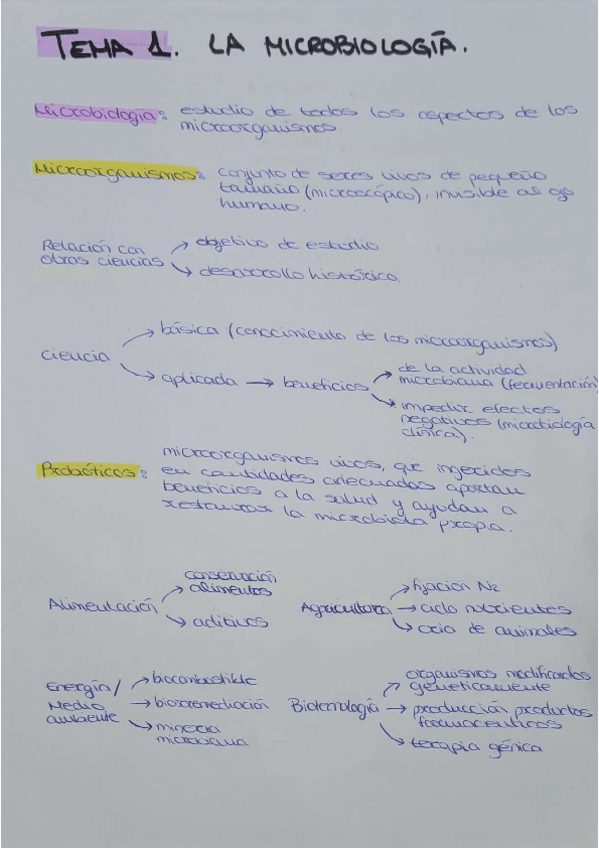 TEMA 1. LA MICROBIOLOGÍA.
Microbiología: estudio de todos los aspectos de los
microorganismos.
Microorganismos: conjunto de seres vivos de pequeño
tamaño (microscópico), invisible al ojo
humano.
Relación con
otras ciencias
→ objetivo de estudio
→ desarrollo histórico.
ciencia
→ básica (conocimiento de los microorganismos)
→ aplicada → beneficios
→ de la actividad
microbiana (fermentación)
→ impedir efectos
negativos (microbiología
clínica).
Probióticos: microorganismos vivos, que ingeridos
en cantidades adecuadas aportan
beneficios a la salud y ayudan a
restaurar la microbiota propia.
Alimentación
→ conservación
alimentos
→ aditivos
Agricultura
→ fijación N2
→ ciclo nutrientes
→ cría de animales
Energía/
Medio
ambiente
→ biocombustible
→ biorremediación
→ minería
microbiana
Biotecnología
→ organismos modificados
genéticamente
→ producción productos
farmacéuticos
→ terapia génica